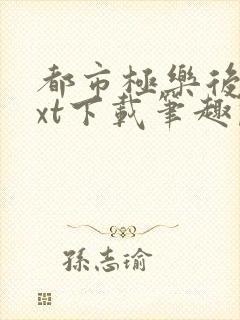 都市極樂後
xt下載筆趣
孫志瑜